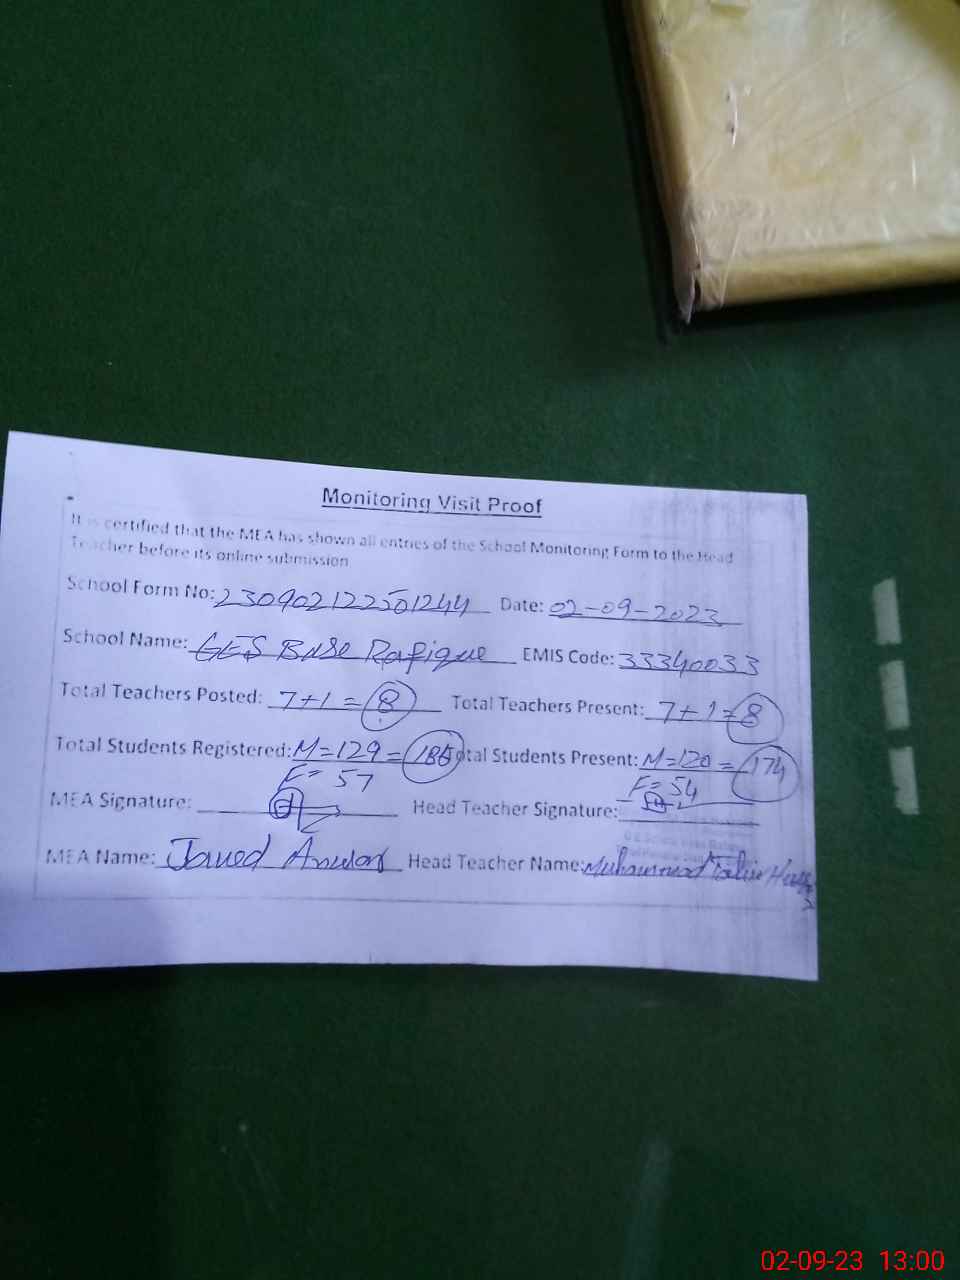 Monitoring Visit Proof
It is certified that the MEA has shown all entries of the School Monitoring Form to the Head
Teacher before its online submission
School Form No: 230902122501244 Date: 02-09-2023
School Name: GES Base Rafique EMIS Code: 33340033
Total Teachers Posted: 7+1=8 Total Teachers Present: 7+1=8
Total Students Registered: M=129=186 Total Students Present: M=120=174
F=57 F=54
MEA Signature: Head Teacher Signature:
MEA Name: Javed Anwar Head Teacher Name: Muhammad
02-09-23 13:00